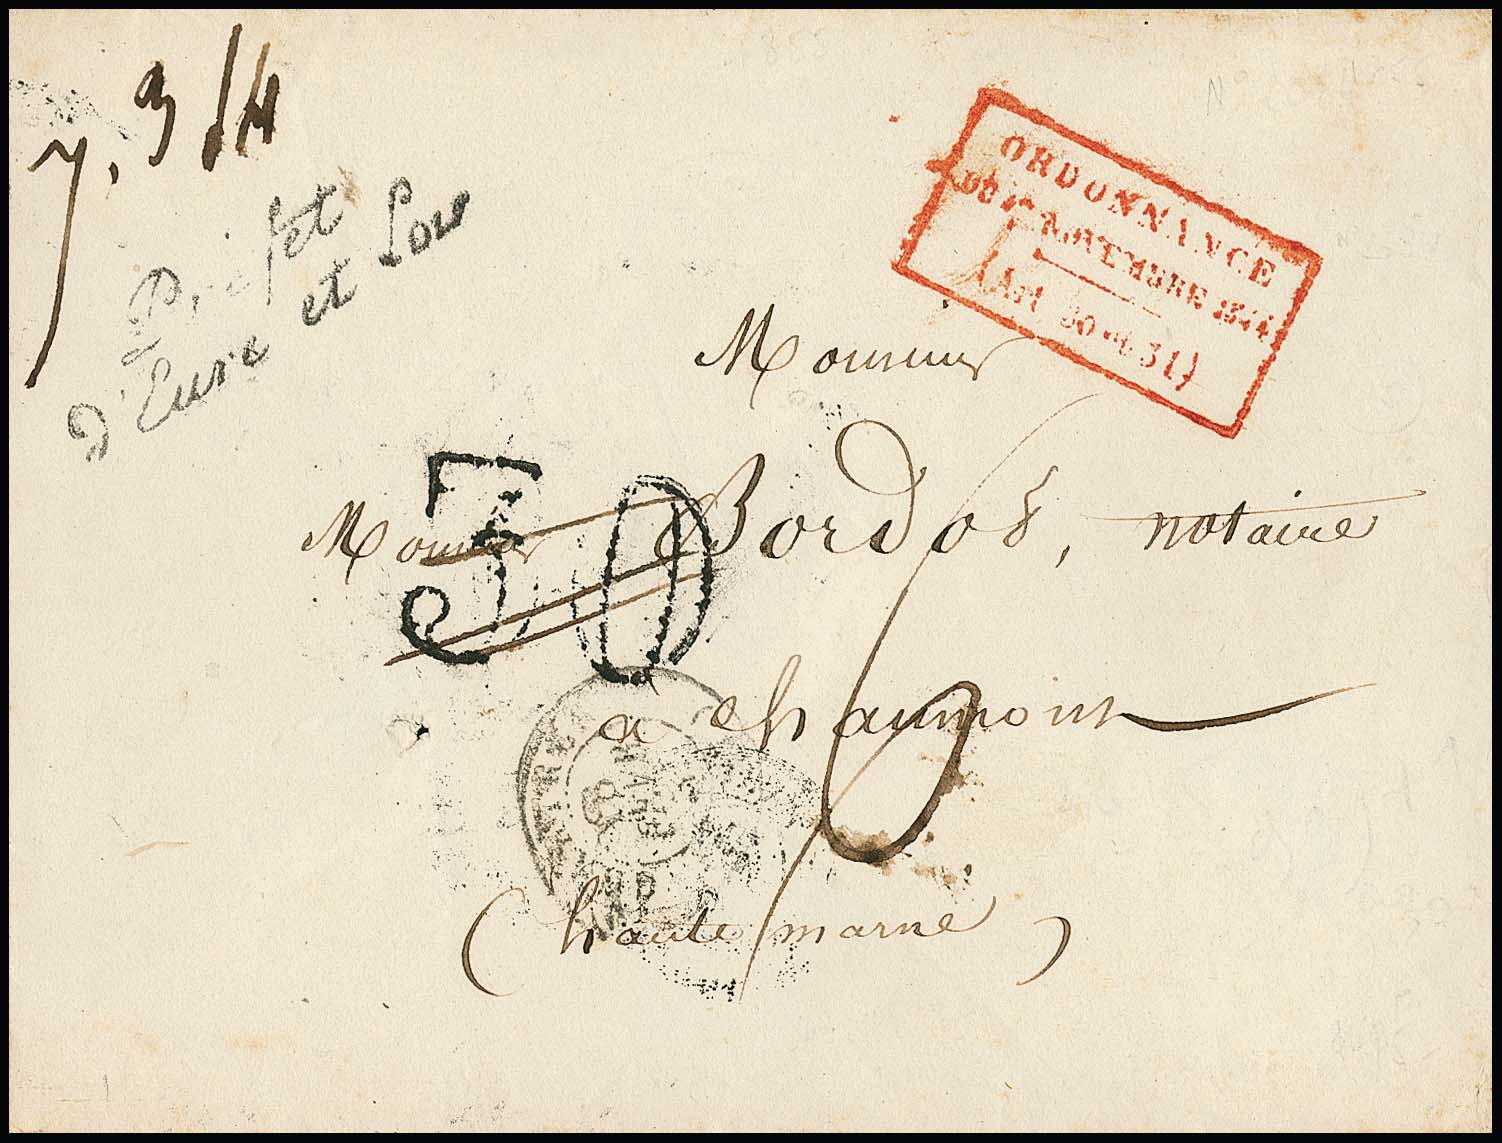 7, 3/4
Préfet
d'Eure et Loir
ORDONNANCE
DU 1er NOVEMBRE 1844
(Art 30 et 31)
Monsieur
Monsieur Bordos, notaire
30
a chaumont
6
(haute marne)